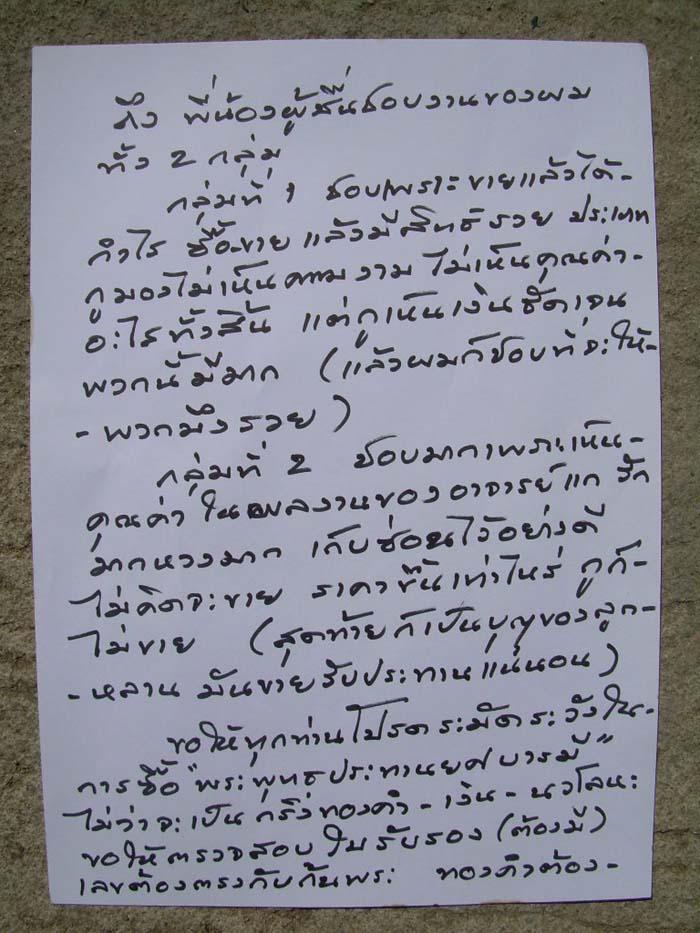 ถึง พี่น้องผู้ชื่นชอบงานของผม
ทั้ง 2 กลุ่ม
กลุ่มที่ 1 ชอบเพราะขายแล้วได้-
กำไร ซื้อขายแล้วมีสิทธิรวย ประเภท
กูมองไม่เห็นความงาม ไม่เห็นคุณค่า-
อะไรทั้งสิ้น แต่กูเห็นเงินชัดเจน
พวกนี้มีมาก (แล้วผมก็ชอบที่จะให้-
- พวกมึงรวย)
กลุ่มที่ 2 ชอบมากเพราะเห็น-
คุณค่าในผลงานของอาจารย์แก รัก
มากหวงมาก เก็บซ่อนไว้อย่างดี
ไม่คิดจะขาย ราคาขึ้นเท่าไหร่ กูก็-
ไม่ขาย (สุดท้ายก็เป็นบุญของลูก-
- หลาน มันขายรับประทานแน่นอน)
ขอให้ทุกท่านโปรดระมัดระวังใน-
การซื้อ "พระพุทธประทานยศบารมี"
ไม่ว่าจะเป็นกริ่งทองคำ - เงิน - นวโลหะ
ขอให้ตรวจสอบใบรับรอง (ต้องมี)
เลขต้องตรงกับก้นพระ ทองคำต้อง-